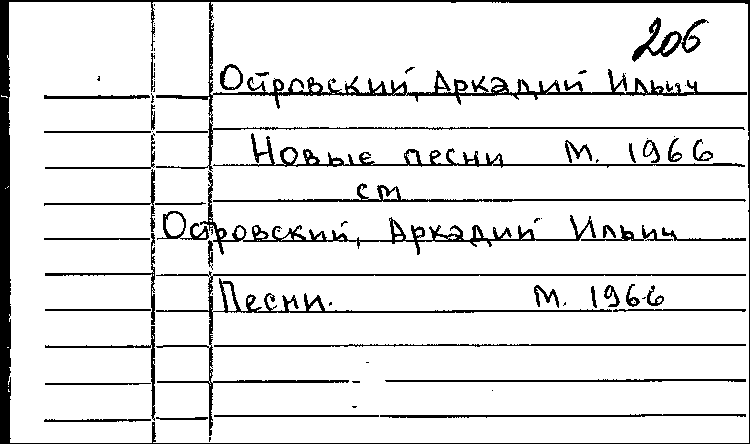 206
Островский, Аркадий Ильич
Новые песни М. 1966
см
Островский, Аркадий Ильич
Песни. М. 1966